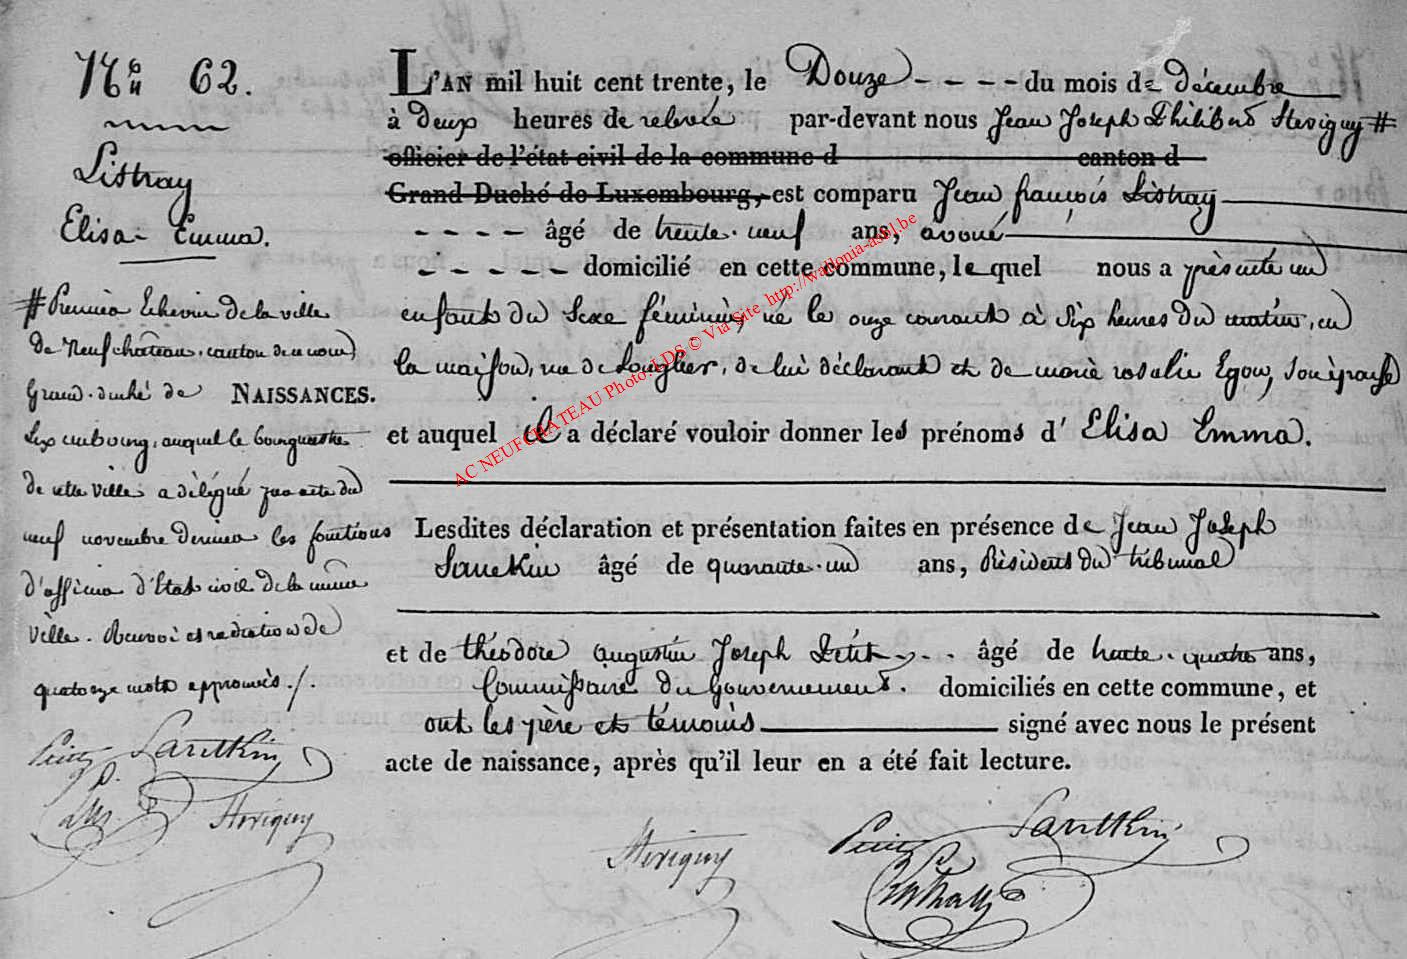 No 62.
Listray
Elisa Emma.
# Premier Echevin de la ville
de Neufchâteau, canton de ce nom,
Grand-duché de
NAISSANCES.
Luxembourg, auquel le bourgmestre
de cette ville a délégué par acte du
neuf novembre dernier les fonctions
d'officier d'Etat civil de la même
ville. Renvoi et radiation de
quatorze mots approuvés ./.
Petit Sanetkin
Stevigny
L'AN mil huit cent trente, le Douze - - - - du mois de décembre
à deux heures de relevée par-devant nous Jean Joseph Philibert Stevigny #
officier de l'état civil de la commune d canton d
Grand Duché de Luxembourg, est comparu Jean françois Listray
- - - - âgé de trente-neuf ans, avoué
- - - - - domicilié en cette commune, lequel nous a présenté un
enfant du Sexe féminin, né le onze courant à Six heures du matin, en
la maison, rue de Longlier, de lui déclarant et de marie rosalie Egon, son épouse
et auquel il a déclaré vouloir donner les prénoms d' Elisa Emma.
Lesdites déclaration et présentation faites en présence de Jean Joseph
Sanetkin âgé de quarante-un ans, Président du tribunal
et de théodore augustin Joseph Petit - - . âgé de trente-quatre ans,
Commissaire du Gouvernement. domiciliés en cette commune, et
ont les père et témoins signé avec nous le présent
acte de naissance, après qu'il leur en a été fait lecture.
Stevigny
Petit Sanetkin
Listray
AC NEUFCHATEAU Photo: LDS © Via Site http://wallonia-asbl.be